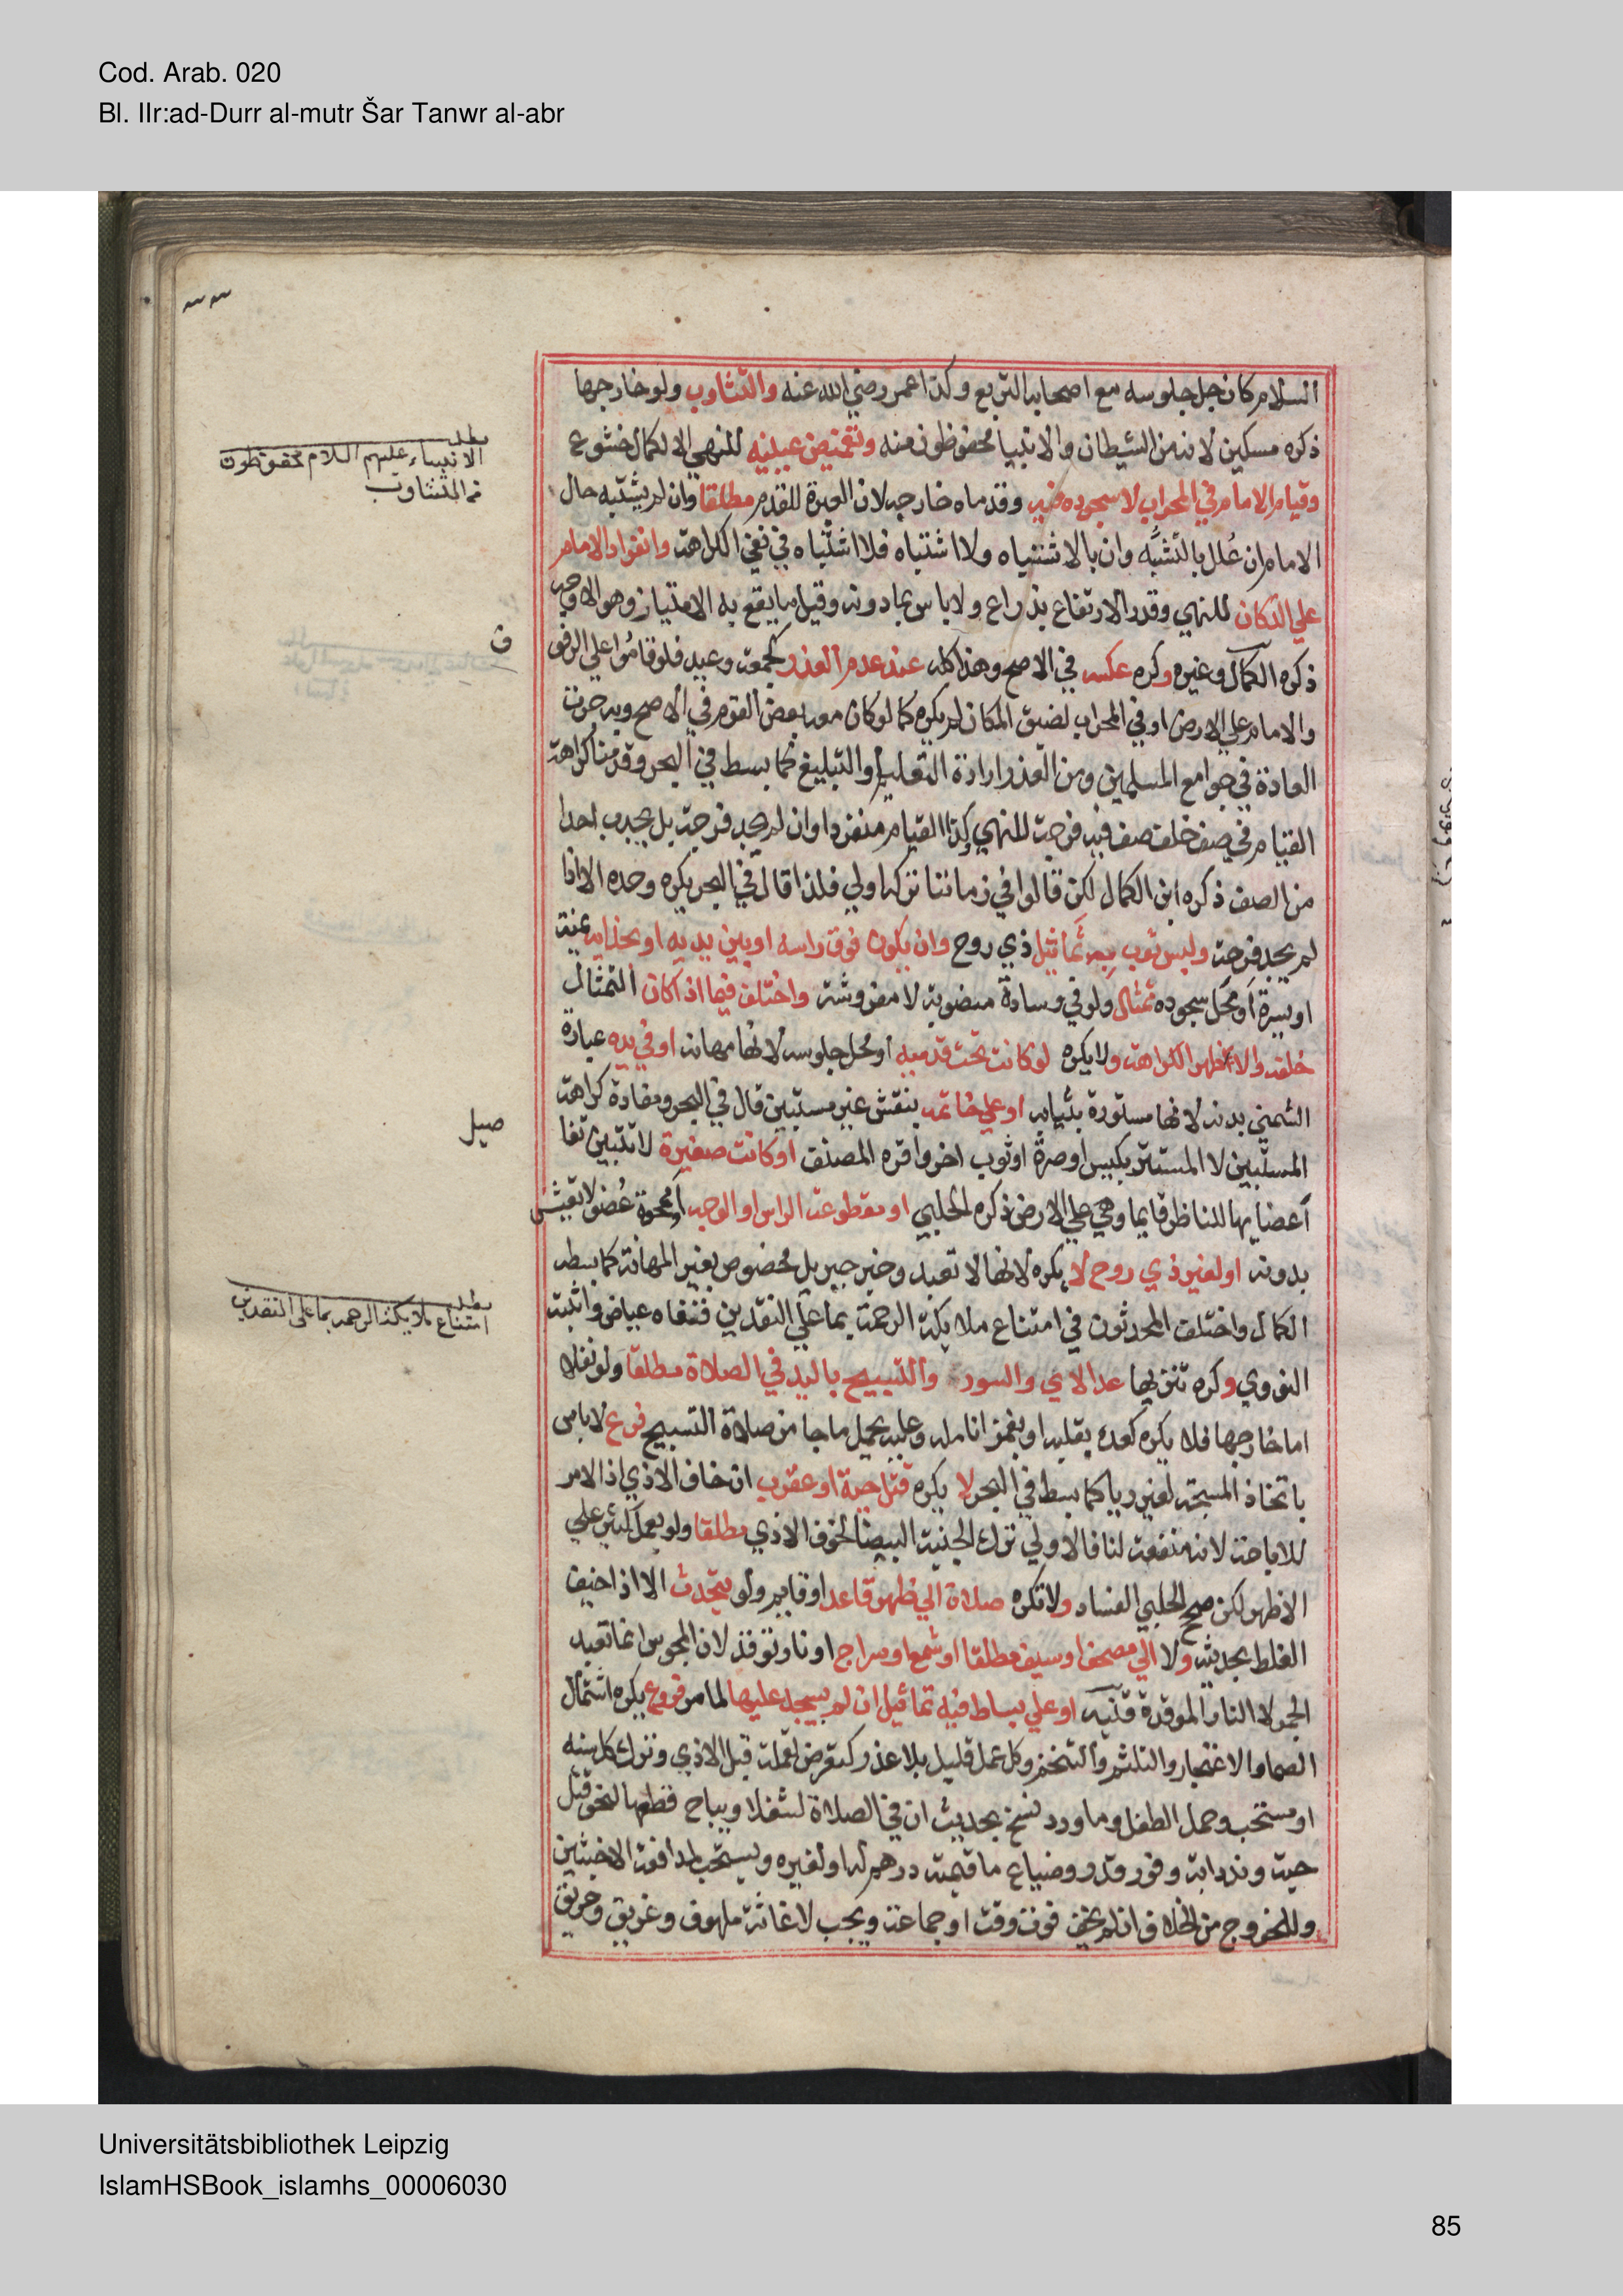 Cod. Arab. 020
Bl. IIr:ad-Durr al-mutr Šar Tanwr al-abr
السلام كان جل جلوسه مع اصحابه التربع وكذا عمر رضي الله عنه والتثاوب ولو خارجها
ذكره مسكين لانه من الشيطان والانبيا محفوظون منه وتغميض عينيه للنهي الا لكمال خشوع
وقيام الامام في المحراب لا سجوده فيه وقدماه خارجه لان العبرة للقدم مطلقا وان لم يشتبه حال
الامام ان علل بالتشبه وان بالاشتباه ولا اشتباه فلا اشتباه في نفي الكراهة وانفراد الامام
علي الدكان للنهي وقدر الارتفاع بذراع ولا باس بما دونه وقيل ما يقع به الامتياز وهو الاوجه
ذكره الكمال وغيره وكره عكسه في الاصح وهذا كله عند عدم العذر كجمعة وعيد فلو قاموا علي الرفوف
والامام علي الارض او في المحراب لضيق المكان لم يكره كما لو كان معه بعض القوم في الاصح وبه جرت
العادة في جوامع المسلمين ومن العذر ارادة التعليم او التبليغ كما بسط في البحر وقدمنا كراهة
القيام في صف خلف صف فيه فرجة للنهي وكذا القيام منفردا وان لم يجد فرجة بل يجذب احدا
من الصف ذكره ابن الكمال لكن قالوا في زماننا تركه اولي فلذا قال في البحر يكره وحده الا اذا
لم يجد فرجة ولبس ثوب به تماثيل ذي روح وان يكون فوق راسه او بين يديه او بحذايه يمنة
او يسرة او محل سجوده تمثال ولو في وسادة منصوبة لا مفروشة واختلف فيما اذا كان التمثال
خلفه والاظهر الكراهة ولا يكره لو كانت تحت قدميه او محل جلوسه لانها مهانة او في يده عبارة
الشمني بدنه لانها مستورة بثيابه او علي خاتمه بنقش غير مستبين قال في البحر ومفاده كراهة
المستبين لا المستتر بكيس او صرة او ثوب اخر واقره المصنف او كانت صغيرة لا تتبين تفا
اعضايها للناظر قايما وهي علي الارض ذكره الحلبي او مقطوعة الراس او الوجه او ممحوة عضو لا تعيش
بدونه او لغير ذي روح لا يكره لانها لا تعبد وخبر جبريل مخصوص بغير المهانة كما بسطه
الكمال واختلف المحدثون في امتناع ملايكة الرحمة بما علي النقدين فنفاه عياض واثبته
النووي وكره تنزيها عد الاي والسور والتسبيح باليد في الصلاة مطلقا ولو نفلا
اما خارجها فلا يكره كعده بقلبه او بغمز انامله وعليه يحمل ما جا من صلاة التسبيح فرع لا باس
باتخاذ المسبحة لغير ريا كما بسط في البحر لا يكره قتل حية او عقرب ان خاف الاذي اذ الامر
للاباحة لانه منفعة لنا فالاولي ترك الجنية البيضا لخوف الاذي مطلقا ولو بعمل كثير علي
الاظهر لكن صحح الحلبي الفساد ولا تكره صلاة الي ظهر قاعد او قايم ولو يتحدث الا اذا خيف
الغلط بحديثه ولا الي مصحف او سيف مطلقا او شمع او سراج او نار توقد لان المجوس انما تعبد
الجمر لا النار الموقدة قنية او علي بساط فيه تماثيل ان لم يسجد عليها لما مر فروع يكره اشتمال
الصما والاعتجار والتلثم والتنخم وكل عمل قليل بلا عذر كتعرض لقملة قبل الاذي وترك كل سنة
او مستحب وحمل الطفل وما ورد نسخ بحديث ان في الصلاة لشغلا ويباح قطعها لنحو قتل
حية وند دابة وفور قدر وضياع ما قيمته درهم له او لغيره ويستحب لمدافعة الاخبثين
وللخروج من الخلاف ان لم يخف فوت وقت او جماعة ويجب لاغاثة ملهوف وغريق وحريق
مطلب
الانبياء عليهم السلام محفوظون
من التثاوب
ق
صيل
مطلب
امتناع ملايكة الرحمة بما على النقدين
Universitätsbibliothek Leipzig
IslamHSBook_islamhs_00006030
85